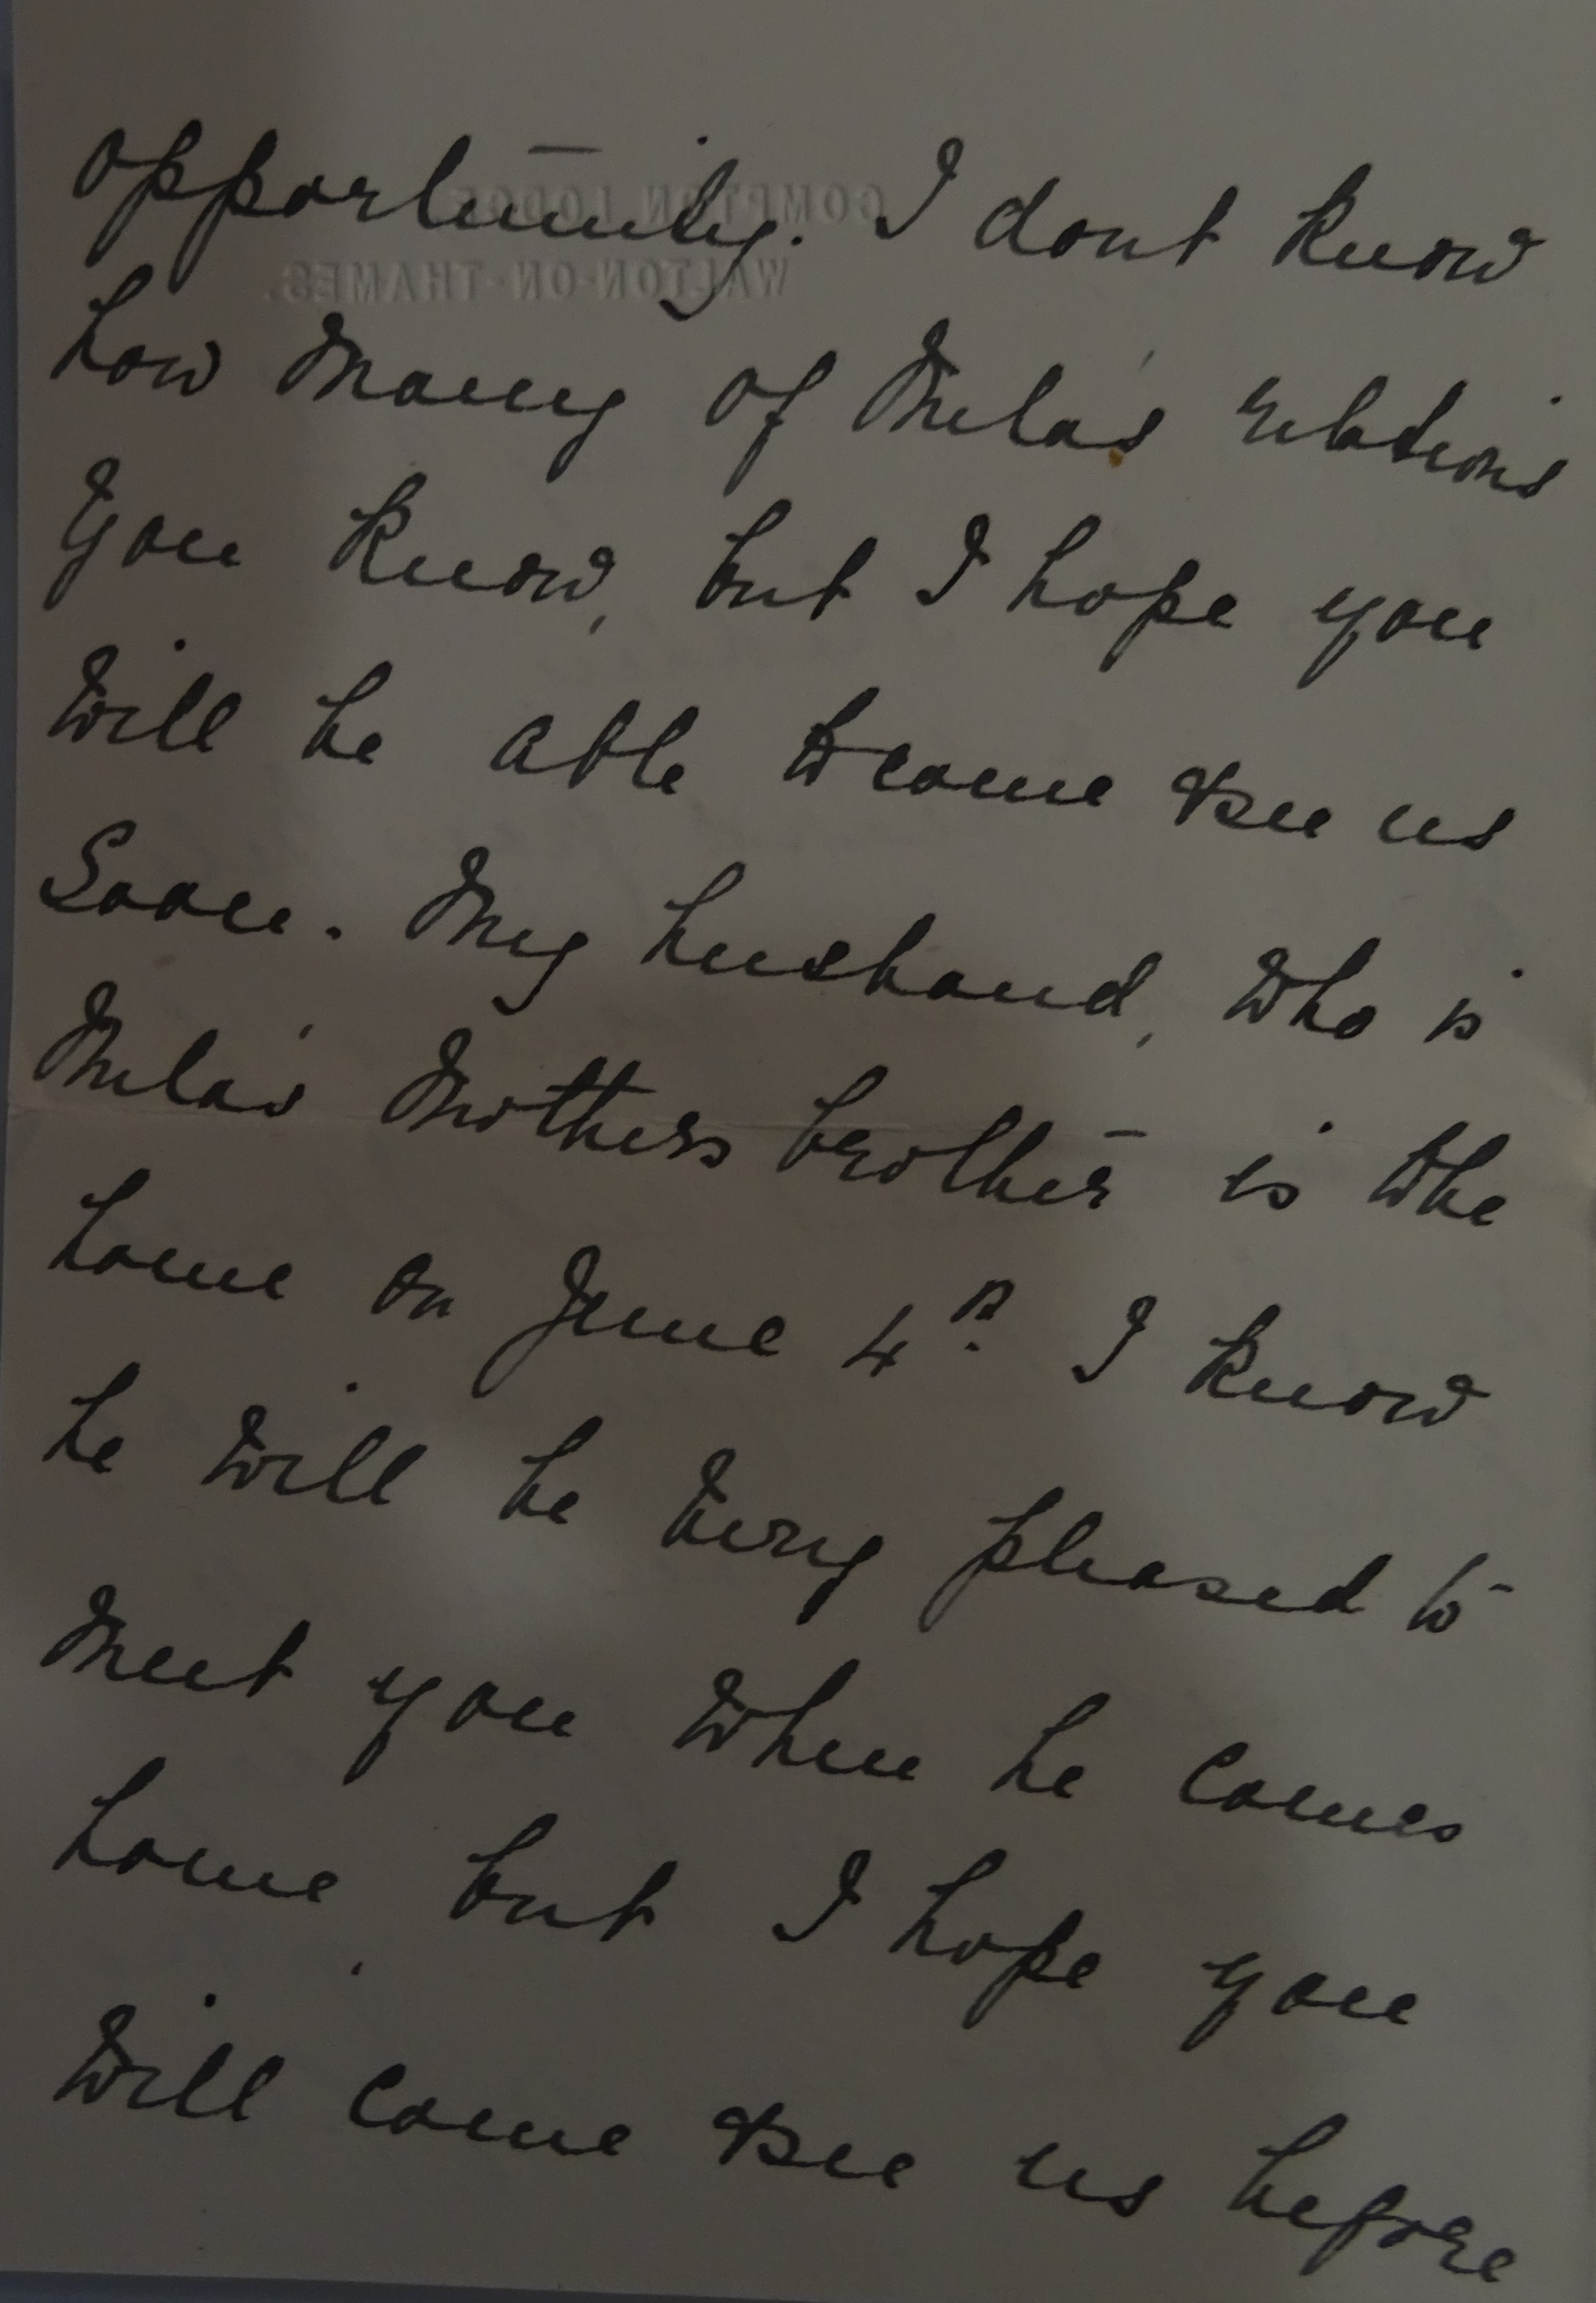 COMPTON LODGE
WALTON-ON-THAMES.
opportunity. I dont know
how many of Mela's relations
you know, but I hope you
will be able to come & see us
soon. My husband, who is
Mela's Mothers brother is to be
home on June 4th. I know
he will be very pleased to
meet you when he comes
home, but I hope you
will come & see us before